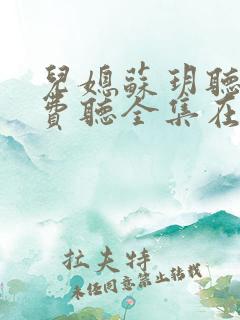 兒媳蘇玥聽
費聽全集在
拉夫特
未經同意禁止轉載